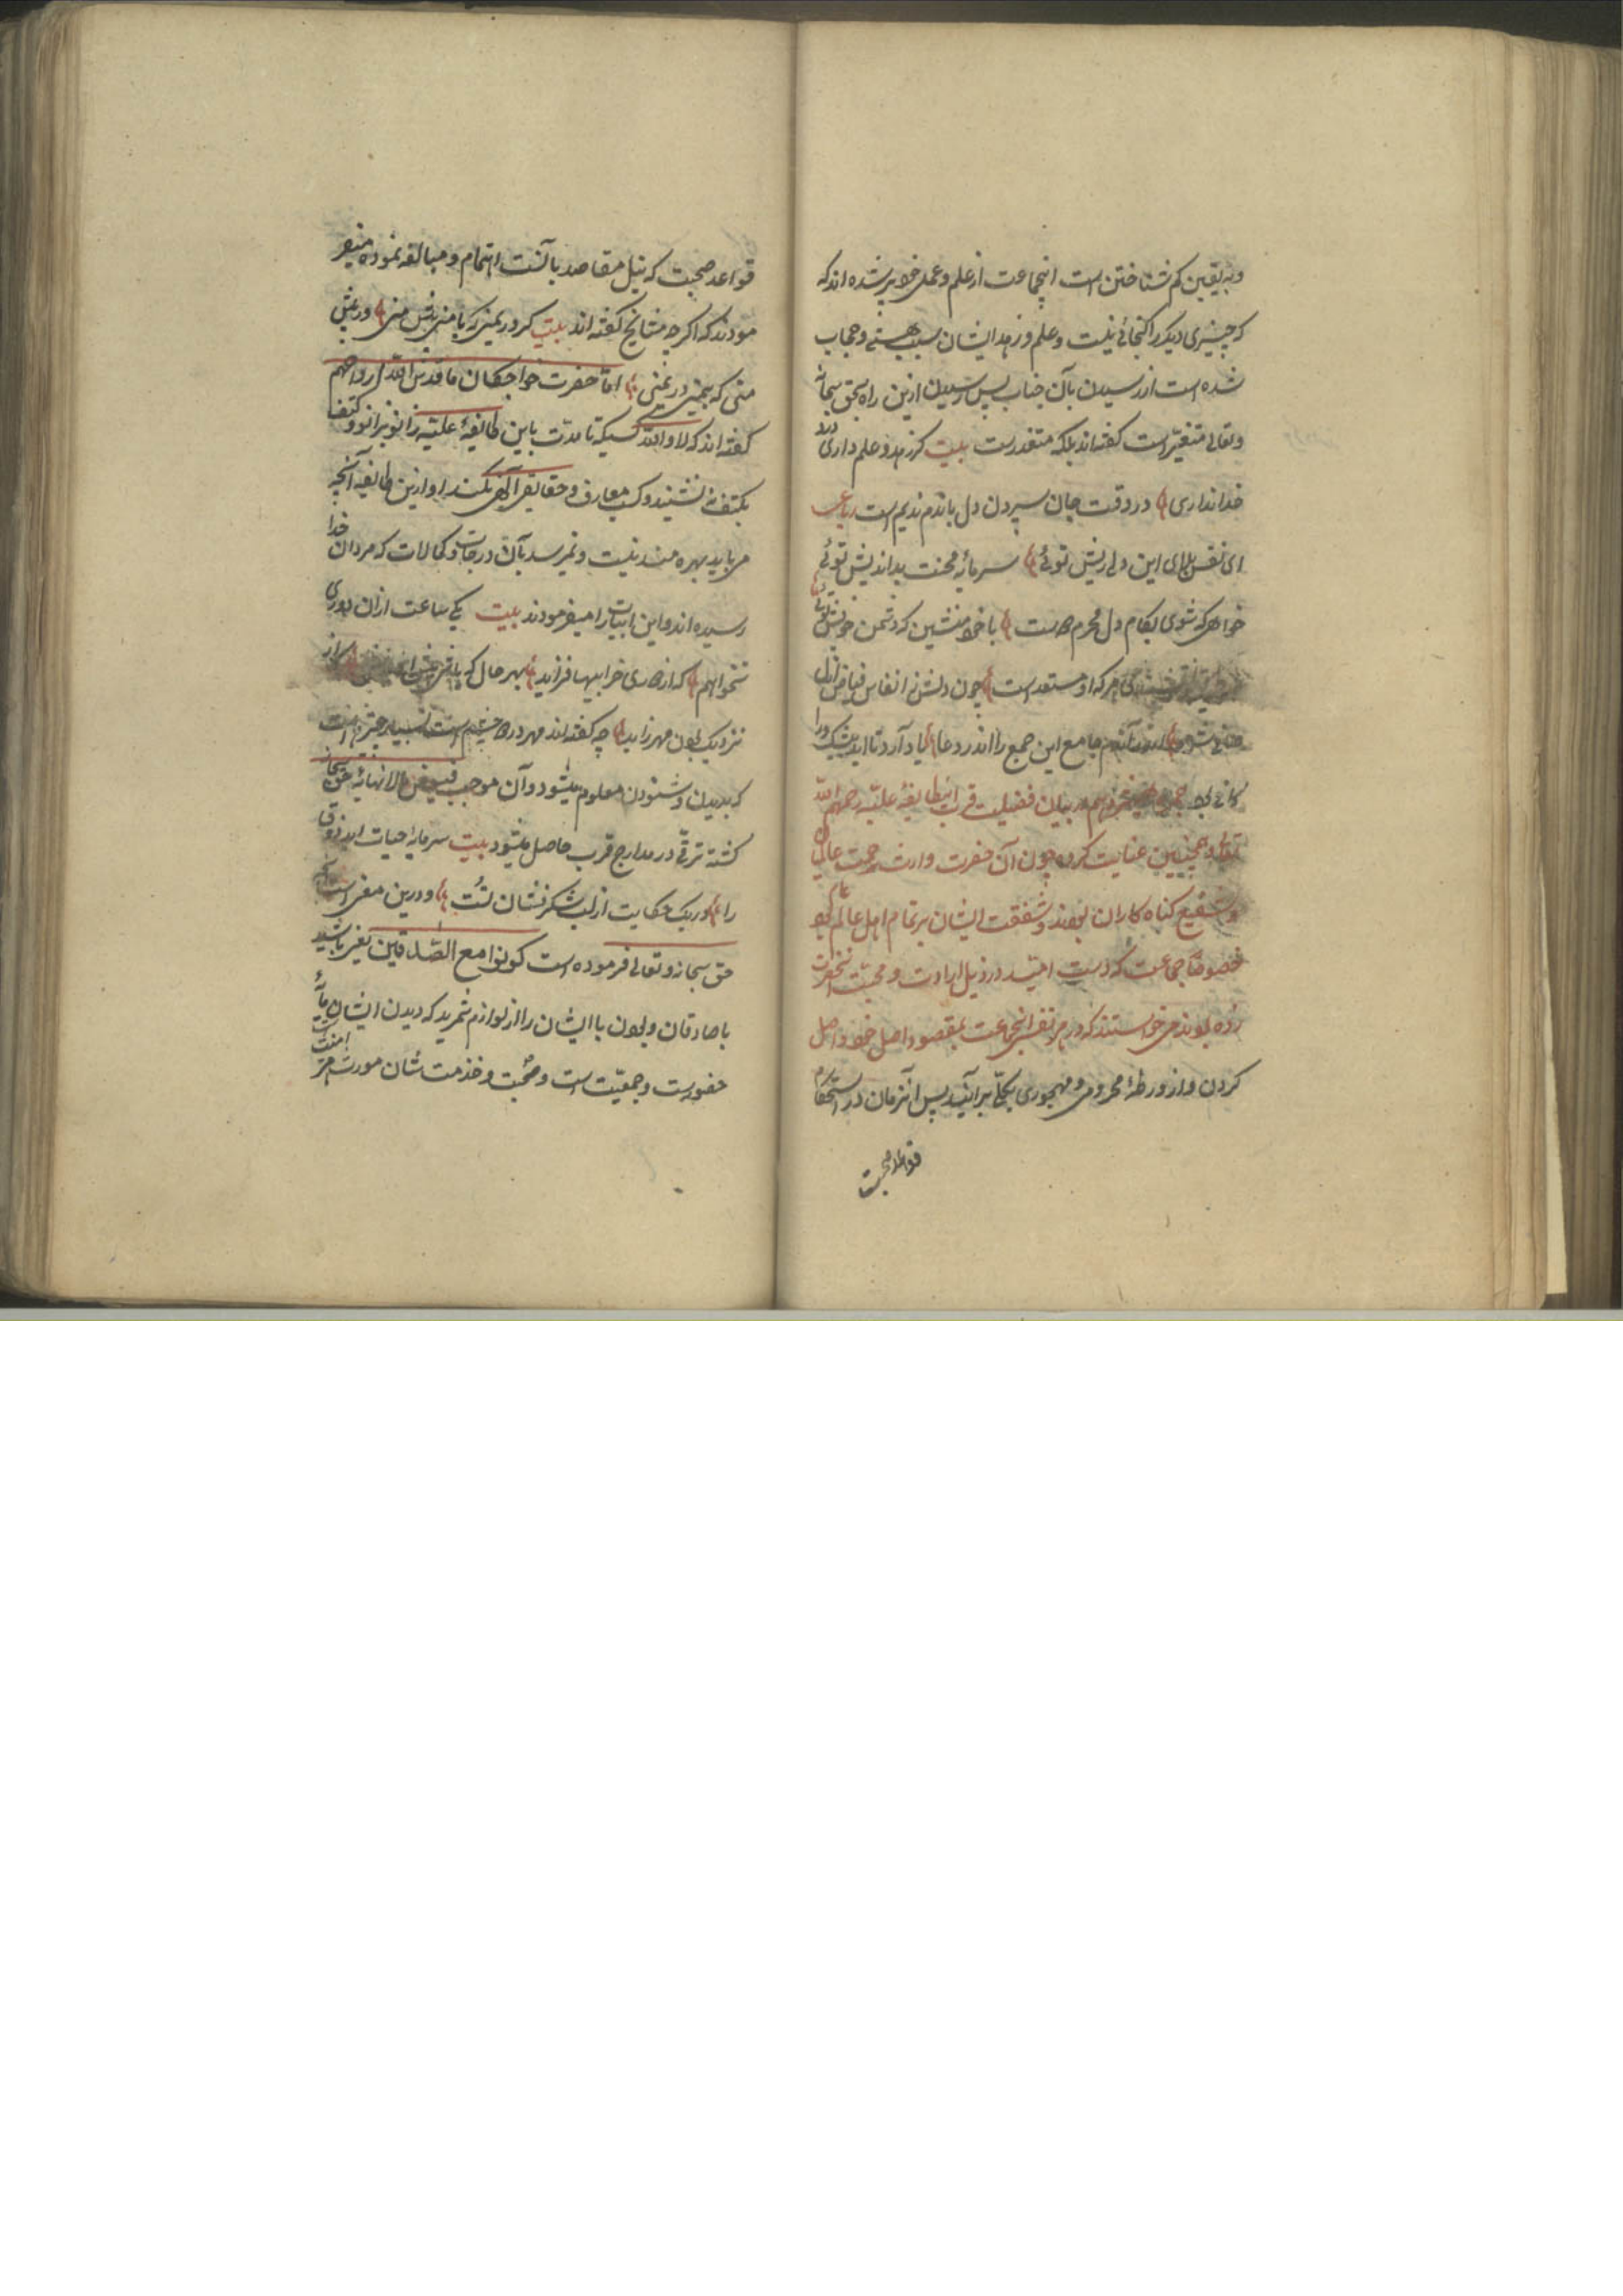 وبه یقین کم شناختن است اینجماعت از علم و عمل خود پر شده اند که
که چیزی دیکر را کنجائی نیست و علم و زهد ایشان سبب هستی و حجاب
شده است از رسیدن بآن جناب پس رسیدن ازین راه بحق سبحانه
وتعالی متغیر است گفته اند بلکه متعذرست بیت کر زهد و علم داری درد
خدا نداری در وقت جان سپردن دل باندم ندیم است رباعی
ای نفس بلای این دل ریش توئی سرمایه محنت بداندیش توئی
خواهی که شوی بکام دل محرم دوست با خود منشین که دشمن خویش توئی
هر که او مستعد است چون دلش ز انفاس فیاض ازل
جامع این جمع را اندر دعا یاد آرد تا ابد بیشک ورا
کافی بود در بیان فضیلت قرب اینطایفه علیه رحمهم الله
تعالی وهمچنین عنایت کرده چون آن حضرت وارث رحمت عالمیان
وشفیع کناه کاران بودند وشفقت ایشان بر تمام اهل عالم عام بود
خصوصا جماعت که دست امید در ذیل ارادت و محبت آنحضرت
زده بودند می خواستند که در هر نفس اینجماعت بمقصود اصل خود واصل
کردن و از ورطهٔ محرومی و مهجوری بکلی برآیند پس آنزمان در استحکام
قواعد صحبت
قواعد صحبت که نیل مقاصد بآنست اهتمام و مبالغه نموده میفر
مودند که اگرچه مشایخ گفته اند بیت کر در یمنی که با منی پیش منی ور پیش
منی که بیمنی در یمنی اما حضرت خواجکان ما قدس الله ارواحهم
گفته اند که لا والله کسیکه تا مدت باین طایفهٔ علیه زانو بزانو و کتف
بکتف ننشیند و کسب معارف و حقایق الهی نکند او ازین طایفه آنچه
می باید بهره مند نیست و نمی رسد بآن درجات و کمالات که مردان خدا
رسیده اند و این ابیات را میفرمودند بیت یکساعت ازان دوری
نخواهم که از دوری خرابیها فزاید بهر حال که باشی پیش او باش که از
نزدیک بودن مهر زاید چه گفته اند مهر در چشم است بسیار چیز است
که بدیدن و شنودن معلوم میشود و آن موجب فیوض لا نهایه حق سبحانه
کشته ترقی در مدارج قرب حاصل میشود بیت سرمایه حیات ابد ذوق
را در یک حکایت از لب شکرفشان تست و درین معنی است
حق سبحانه و تعالی فرموده است کونوا مع الصادقین یعنی باشید
با صادقان و بودن با ایشان را از لوازم شمرید که دیدن ایشان
حضورست و جمعیت است و صحبت و خدمت شان مورث